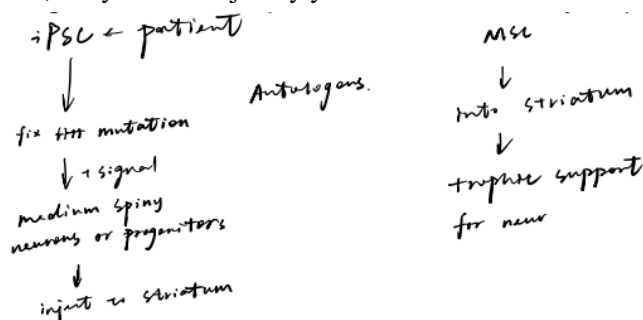 iPSC ← patient
↓
fix mutation
↓ + signal
medium spiny
neurons or progenitors
↓
inject to striatum
Autologous.
MSC
↓
into striatum
↓
trophic support
for neur